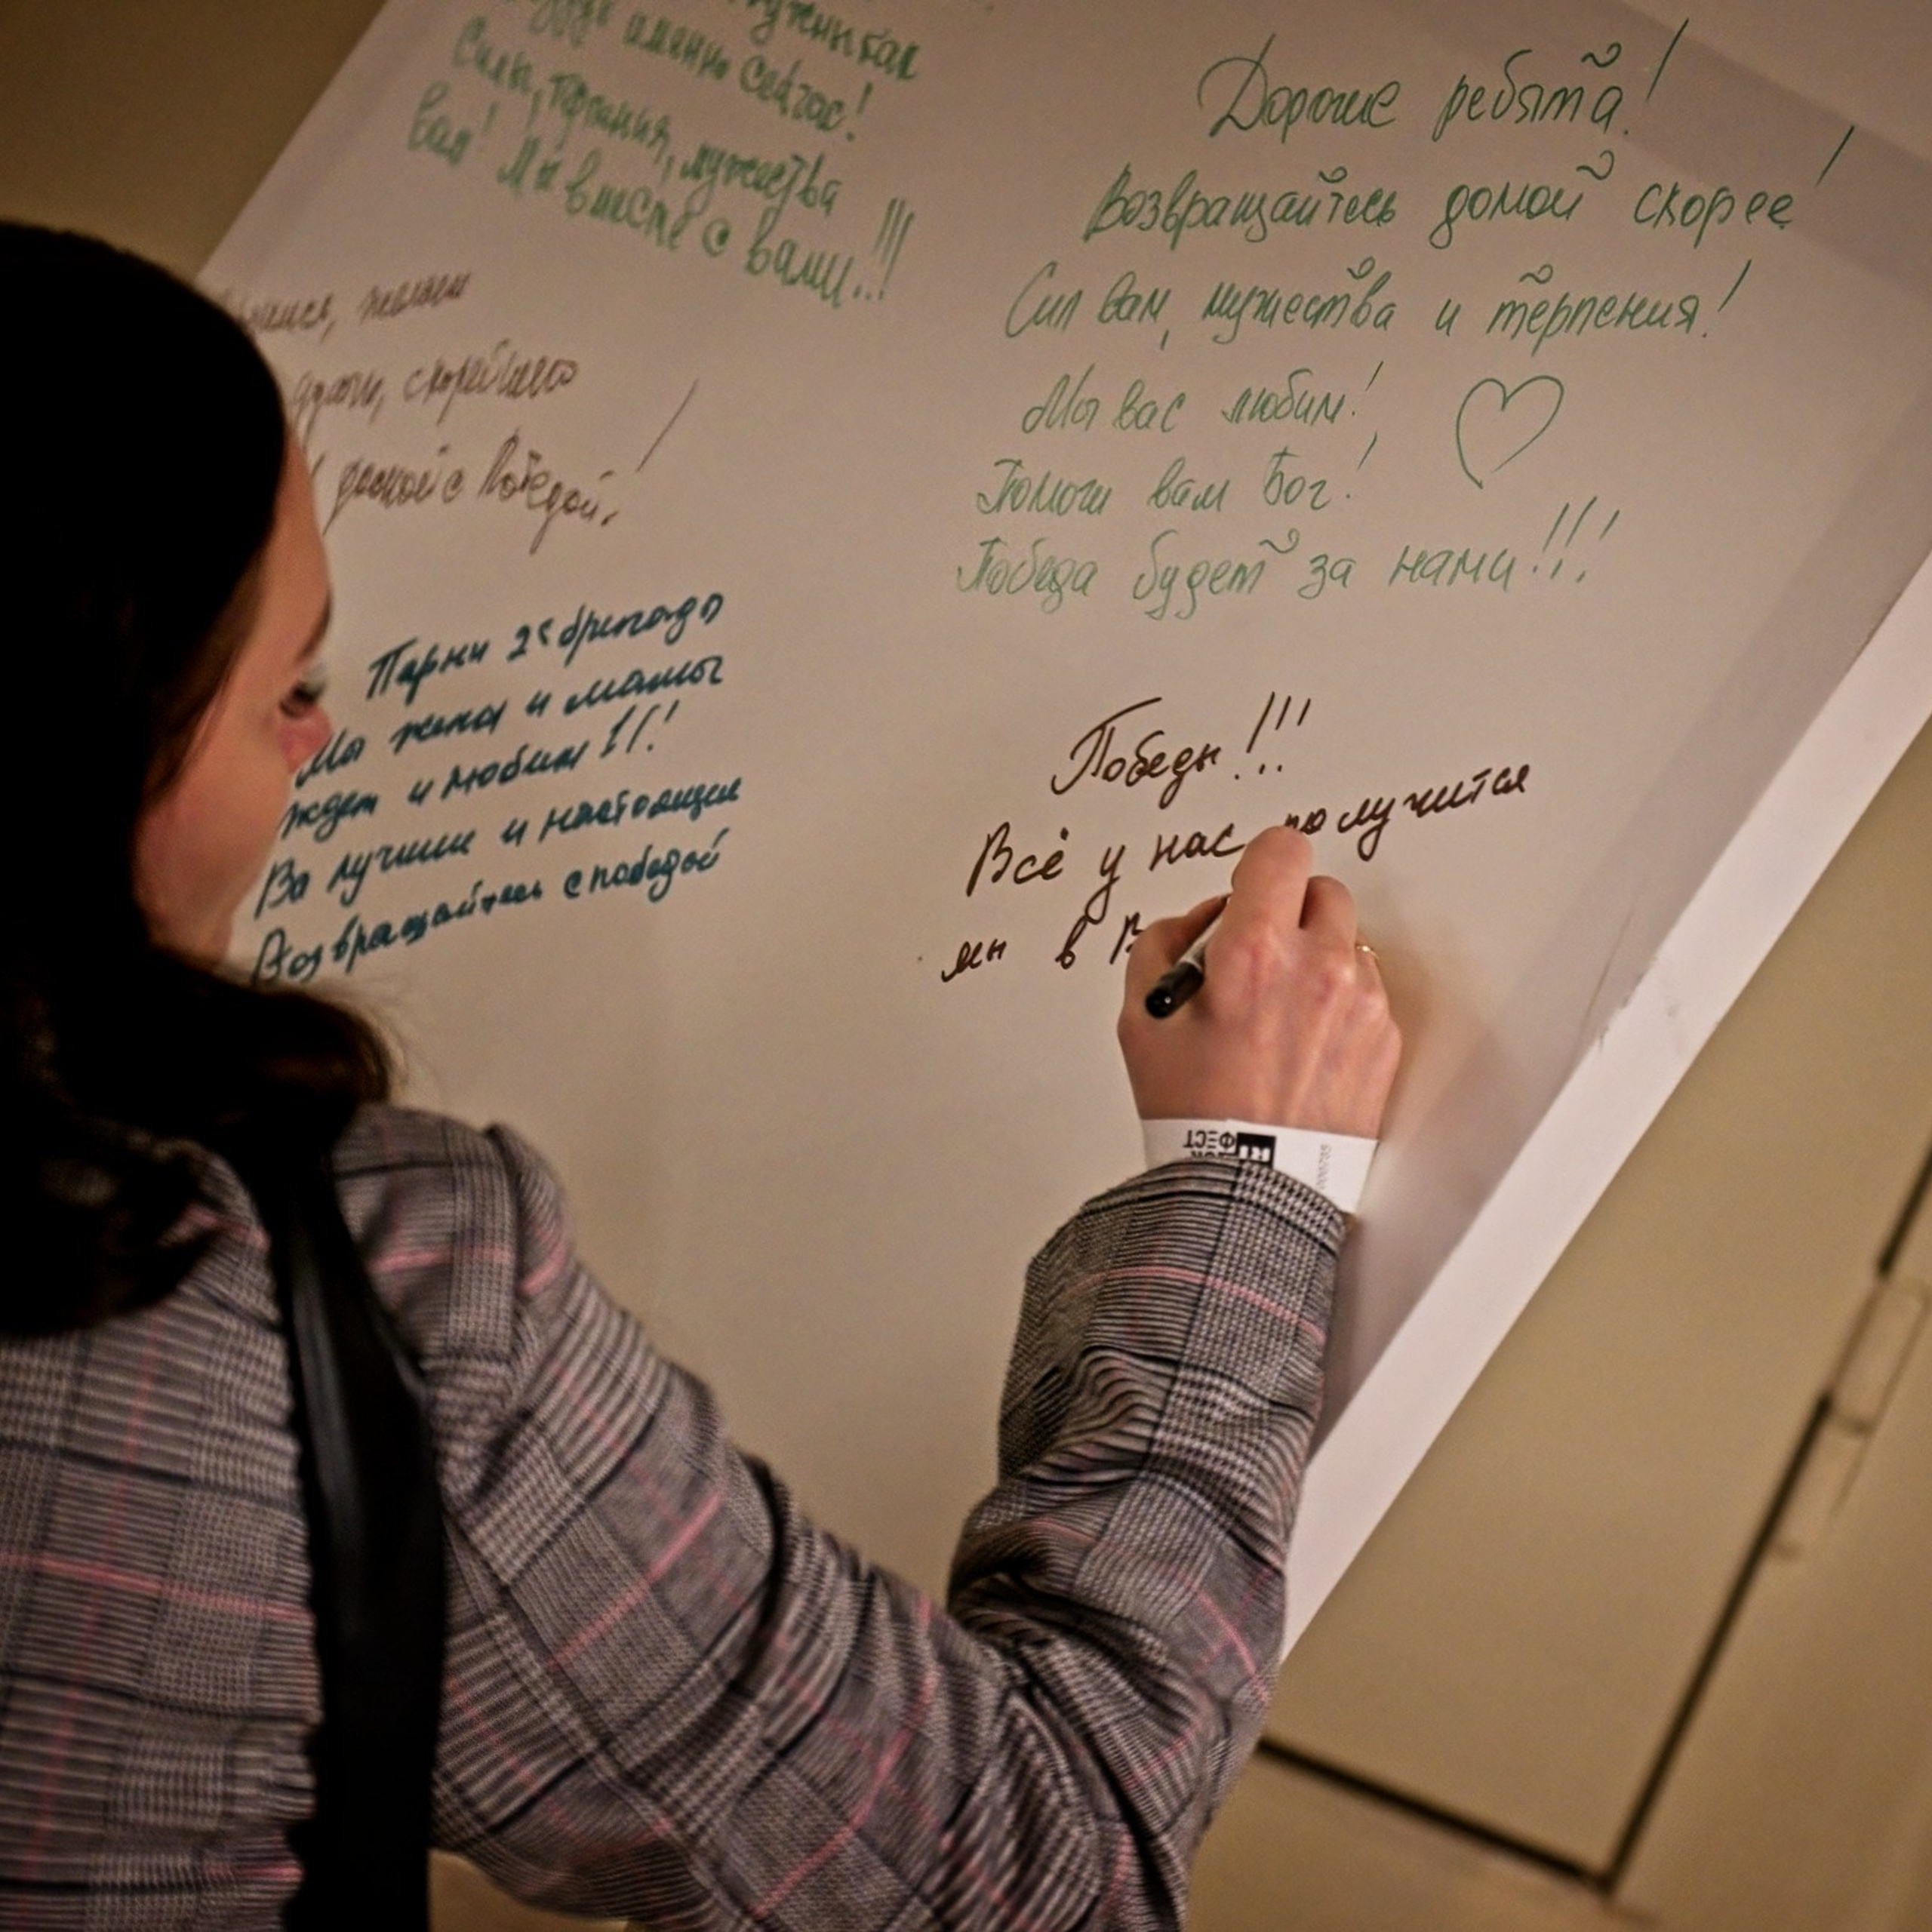 именно сейчас!
Силы, терпения, мужества
вам! Мы вместе с вами..!!!
скорейшего
домой с Победой!
Парни 25 бригады
Мы жены и мамы
ждем и любим !!!
Вы лучшие и настоящие
Возвращайтесь с победой
Дорогие ребята!
Возвращайтесь домой скорее!
Сил вам, мужества и терпения!
Мы вас любим!
Помоги вам Бог!
Победа будет за нами!!!
Победы!!!
Всё у нас получится
мы в В
ФЕСТ